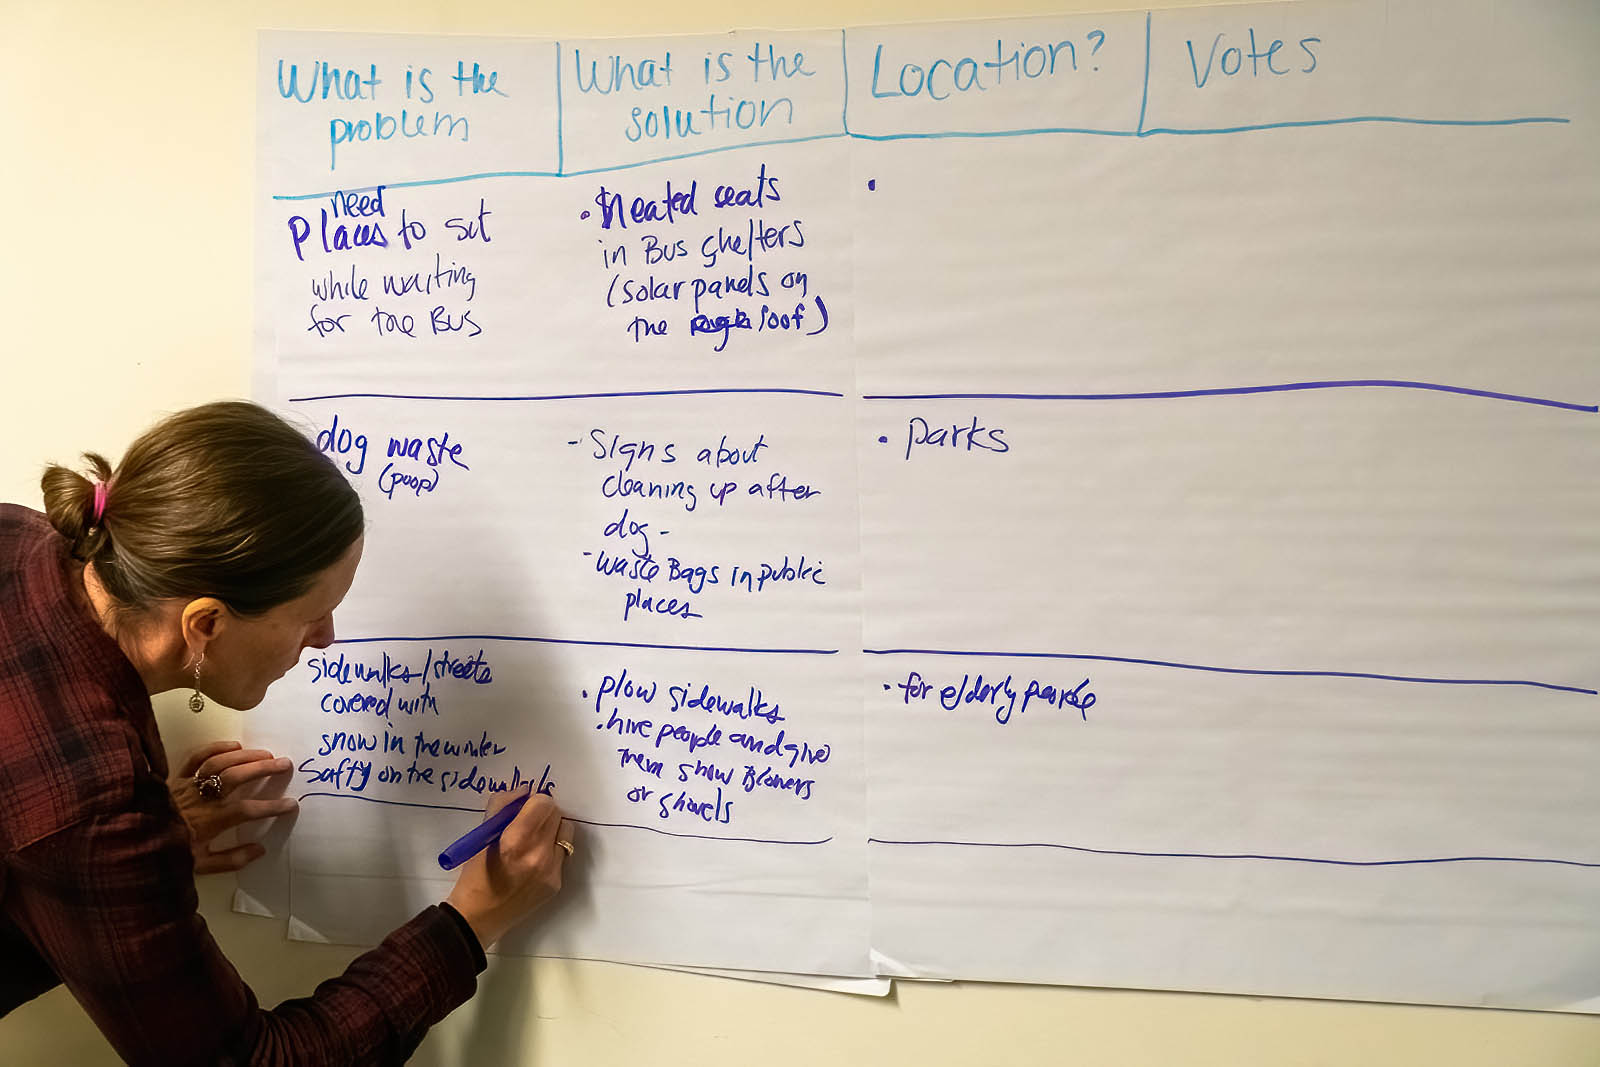 What is the
problem
What is the
solution
Location?
Votes
need
Places to sit
while waiting
for the Bus
• Heated seats
in Bus shelters
(solar panels on
the roof)
•
dog waste
(poop)
- Signs about
cleaning up after
dog -
- waste Bags in public
places
• parks
sidewalks/streets
covered with
snow in the winter
Safty on the sidewalks
• plow sidewalks
• hire people and give
them snow Blowers
or shovels
• for elderly people